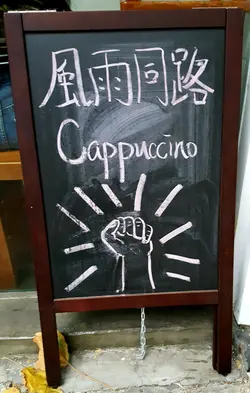 風雨同路
Cappuccino